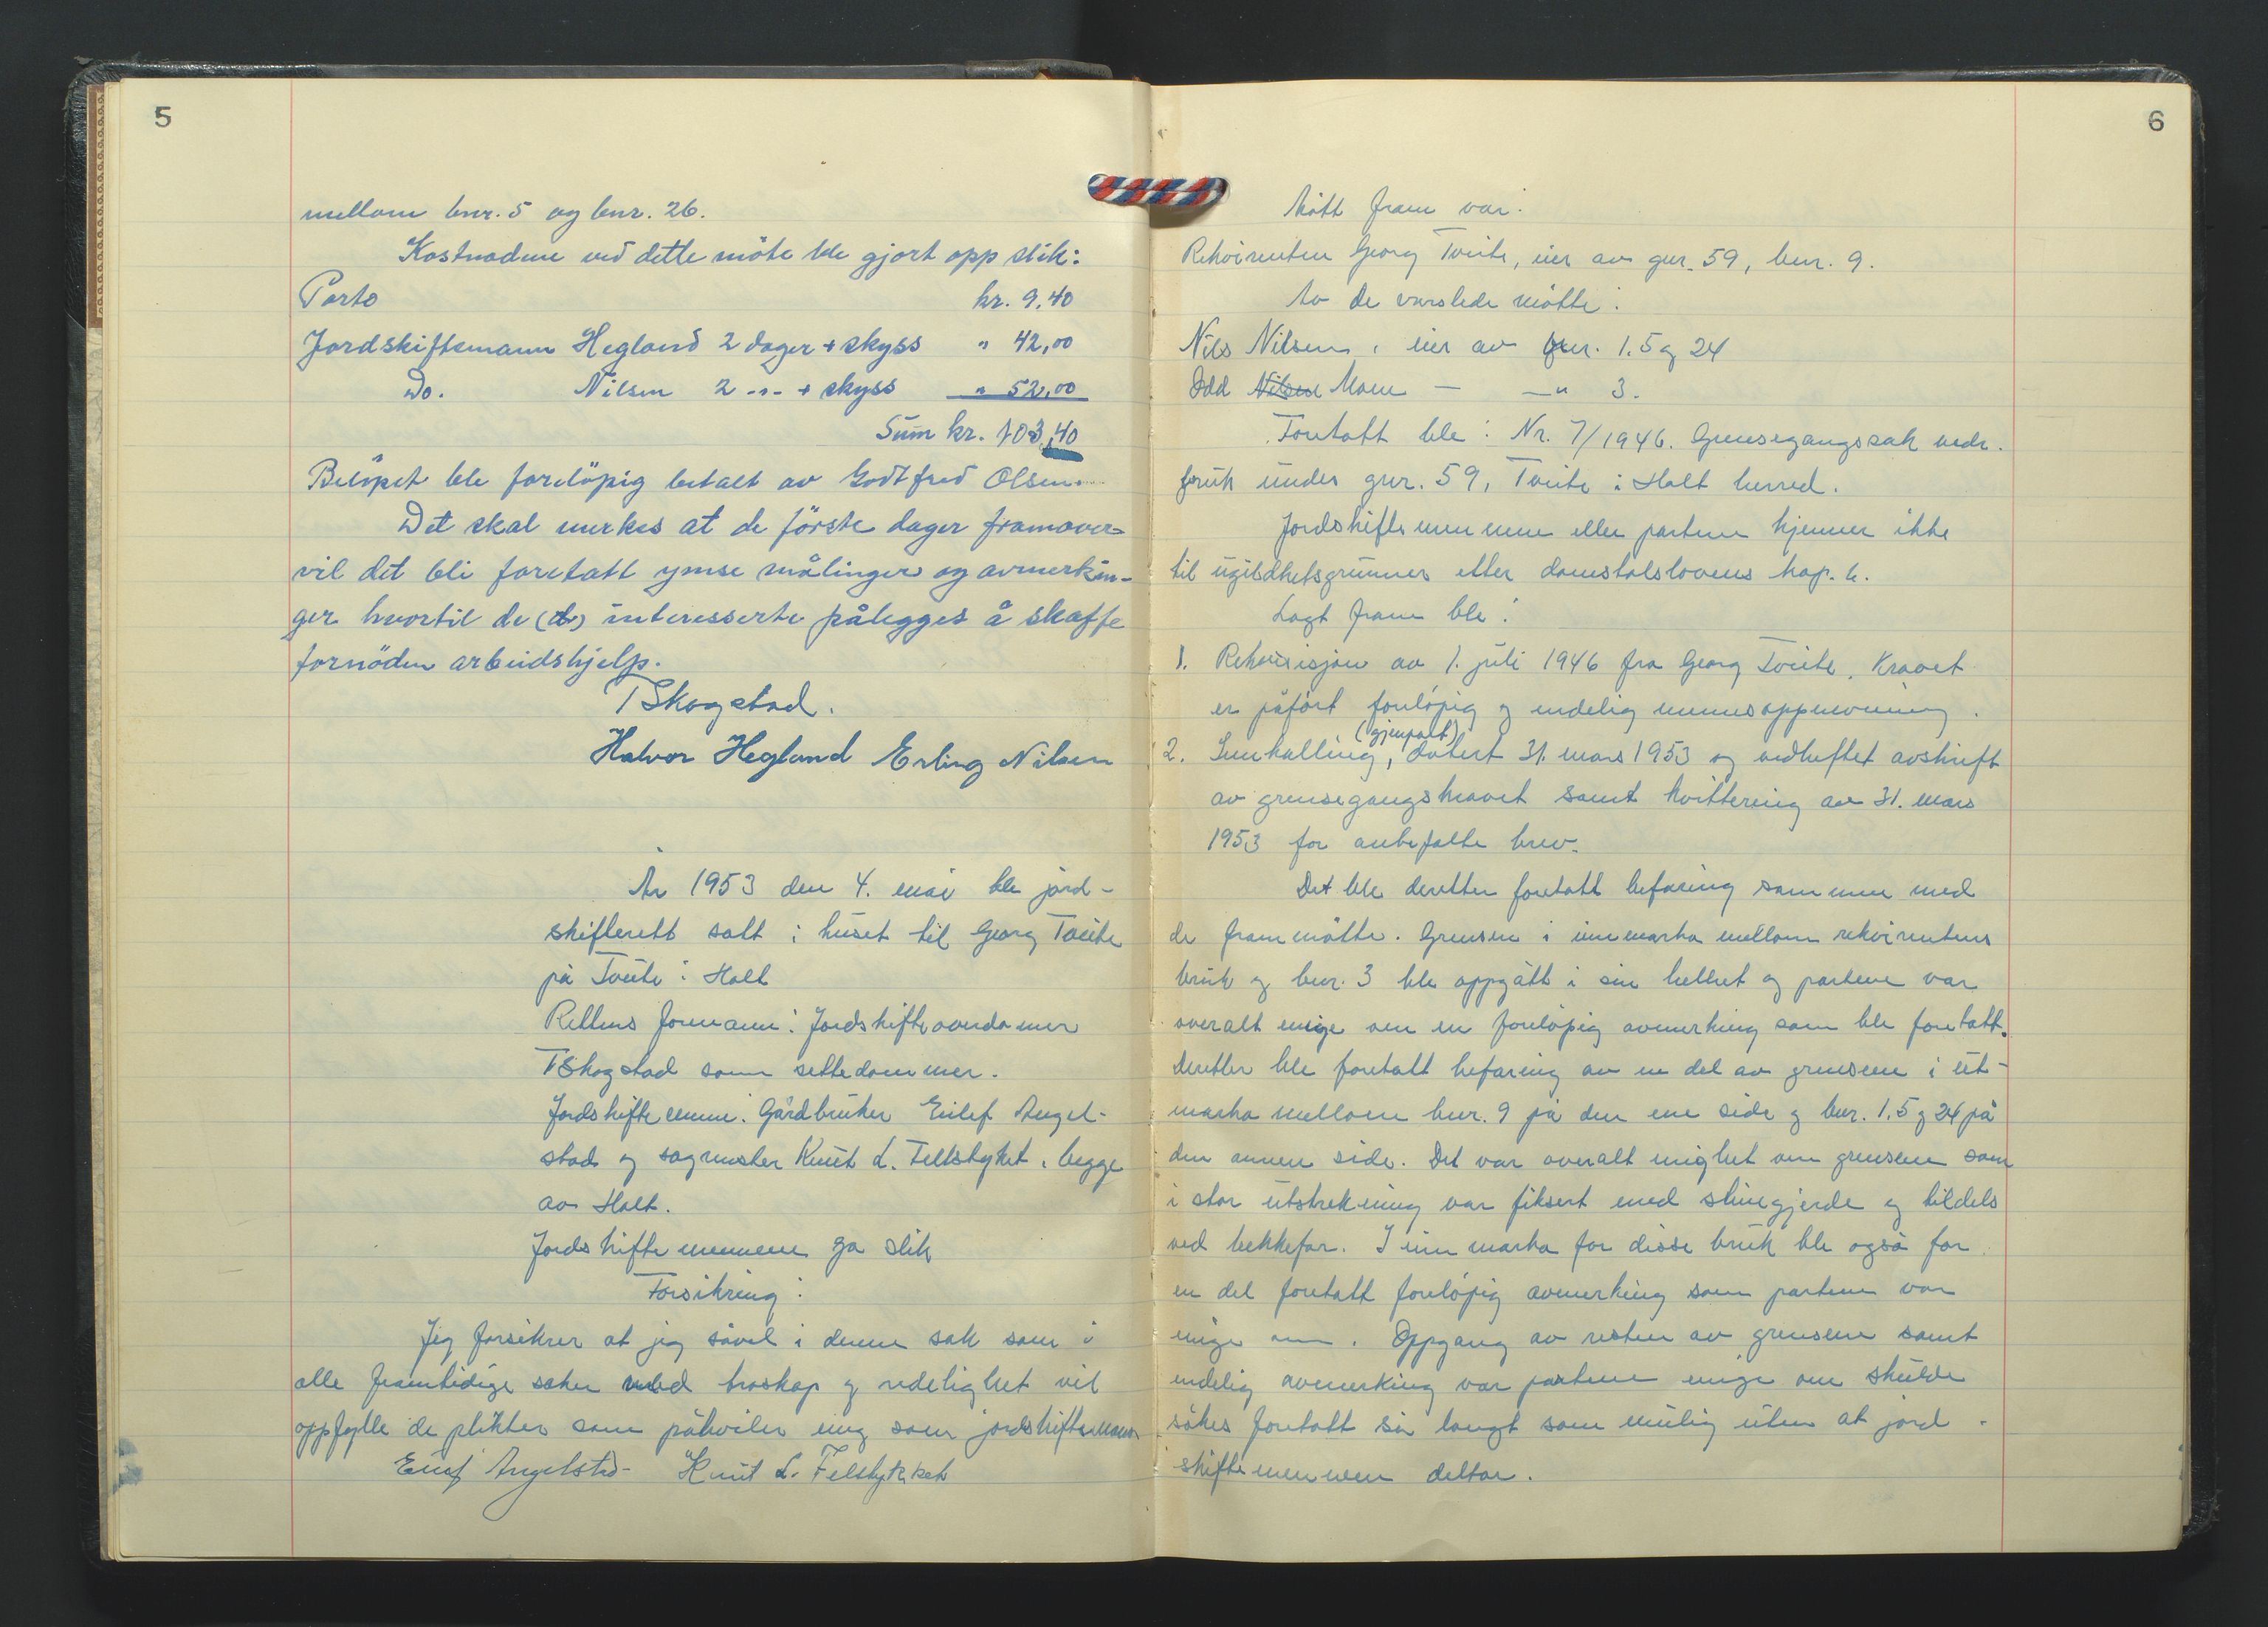 5
mellom bnr. 5 og bnr. 26.
Kostnadene ved dette möte ble gjort opp slik:
Porto kr. 9,40
Jordskiftemann Hegland 2 dager + skyss " 42,00
Do. Nilsen 2 -"- + skyss " 52,00
Sum kr. 103,40
Belöpet ble forelöpig betalt av Godtfred Olsen.
Det skal merkes at de förste dager framover
vil det bli foretatt ymse målinger og avmerkin-
ger hvortil de interesserte pålegges å skaffe
fornöden arbeidshjelp.
T Skogstad.
Halvor Hegland Erling Nilsen
År 1953 den 4. mai ble jord-
skifterett satt i huset til Georg Tveite
på Tveite i Holt
Rettens formann: Jordskifteoverdommer
T Skogstad som settedommer.
Jordskiftemenn: Gårdbruker Eilef Angel-
stad og sagmester Knut L. Fellstykket, begge
av Holt.
Jordskiftemennene ga slik
Forsikring:
Jeg forsikrer at jeg såvel i denne sak som i
alle framtidige saker med troskap og redelighet vil
oppfylle de plikter som påhviler meg som jordskiftemann
Eilef Angelstad Knut L. Fellstykket
6
Mött fram var:
Rekvirenten Georg Tveite, eier av gnr. 59, bnr. 9.
Av de varslede mötte:
Nils Nilsen, eier av bnr. 1.5 og 24
Odd Nilsen Moen — —" 3.
Foretatt ble: Nr. 7/1946. Grensegangssak vedr.
bruk under gnr. 59, Tveite i Holt herred.
Jordskiftemennene eller partene kjenner ikke
til ugildhetsgrunner etter domstolslovens kap. 6.
Lagt fram ble:
1. Rekvisisjon av 1. juli 1946 fra Georg Tveite. Kravet
er påfört forelöpig og endelig mennsoppnevning.
(gjenpart)
2. Innkalling, datert 31. mars 1953 og vedheftet avskrift
av grensegangskravet samt kvittering av 31. mars
1953 for anbefalte brev.
Det ble deretter foretatt befaring sammen med
de frammötte. Grensen i innmarka mellom rekvirentens
bruk og bnr. 3 ble oppgått i sin helhet og partene var
overalt enige om en forelöpig avmerking som ble foretatt.
Deretter ble foretatt befaring av en del av grensene i ut-
marka mellom bnr. 9 på den ene side og bnr. 1.5 og 24 på
den annen side. Det var overalt enighet om grensene som
i stor utstrekning var fiksert med steingjerde og tildels
ved bekkefar. I innmarka for disse bruk ble også for
en del foretatt forelöpig avmerking som partene var
enige om. Oppgang av resten av grensene samt
endelig avmerking var partene enige om skulde
sökes foretatt så langt som mulig uten at jord-
skiftemennene deltar.